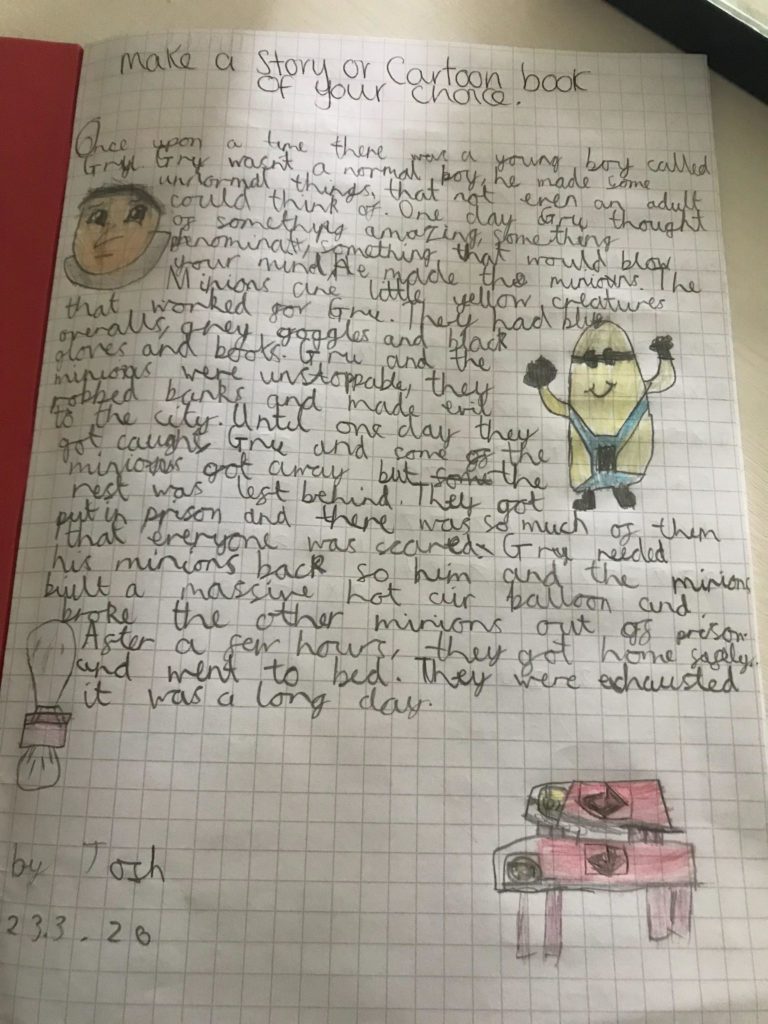 make a story or Cartoon book
of your choice.
Once upon a time there was a young boy called
Gru. Gru wasnt a normal boy, he made some
unormal things, that not even an adult
could think of. One day Gru thought
of something amazing, something
phenominalt, something that would blow
your mind. He made the minions. The
Minions are little yellow creatures
that worked for Gru. They had blue
overalls, grey goggles and black
gloves and boots. Gru and the
minions were unstoppable, they
robbed banks and made evil
to the city. Until one day they
got caught, Gru and some of the
minions got away but some the
rest was left behind. They got
put in prison and there was so much of them
that everyone was scared. Gru needed
his minions back so him and the minions
built a massive hot air balloon and
broke the other minions out of prison.
After a few hours, they got home safely.
and went to bed. They were exhausted
it was a long day.
by Josh
23.3.20